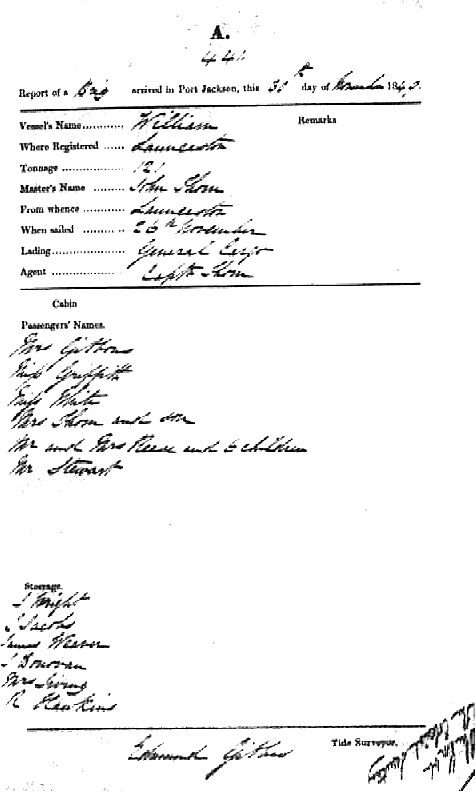 A.
441
Report of a Brig arrived in Port Jackson, this 30th day of November 1840.
Vessel's Name............ William Remarks
Where Registered ...... Launceston
Tonnage ............... 121
Master's Name ........ John Thom
From whence ............ Launceston
When sailed .......... 26th November
Lading.................. General Cargo
Agent .................. Captn Thom
Cabin
Passengers' Names.
Mrs Gibbons
Miss Griffith
Miss White
Mrs Thom and son
Mr and Mrs Reese and 6 children
Mr Stewart
Steerage.
J Wright
J Jacobs
James Weaver
J Donovan
Mrs Irving
R Hawkins
Edmund Tide Surveyor.